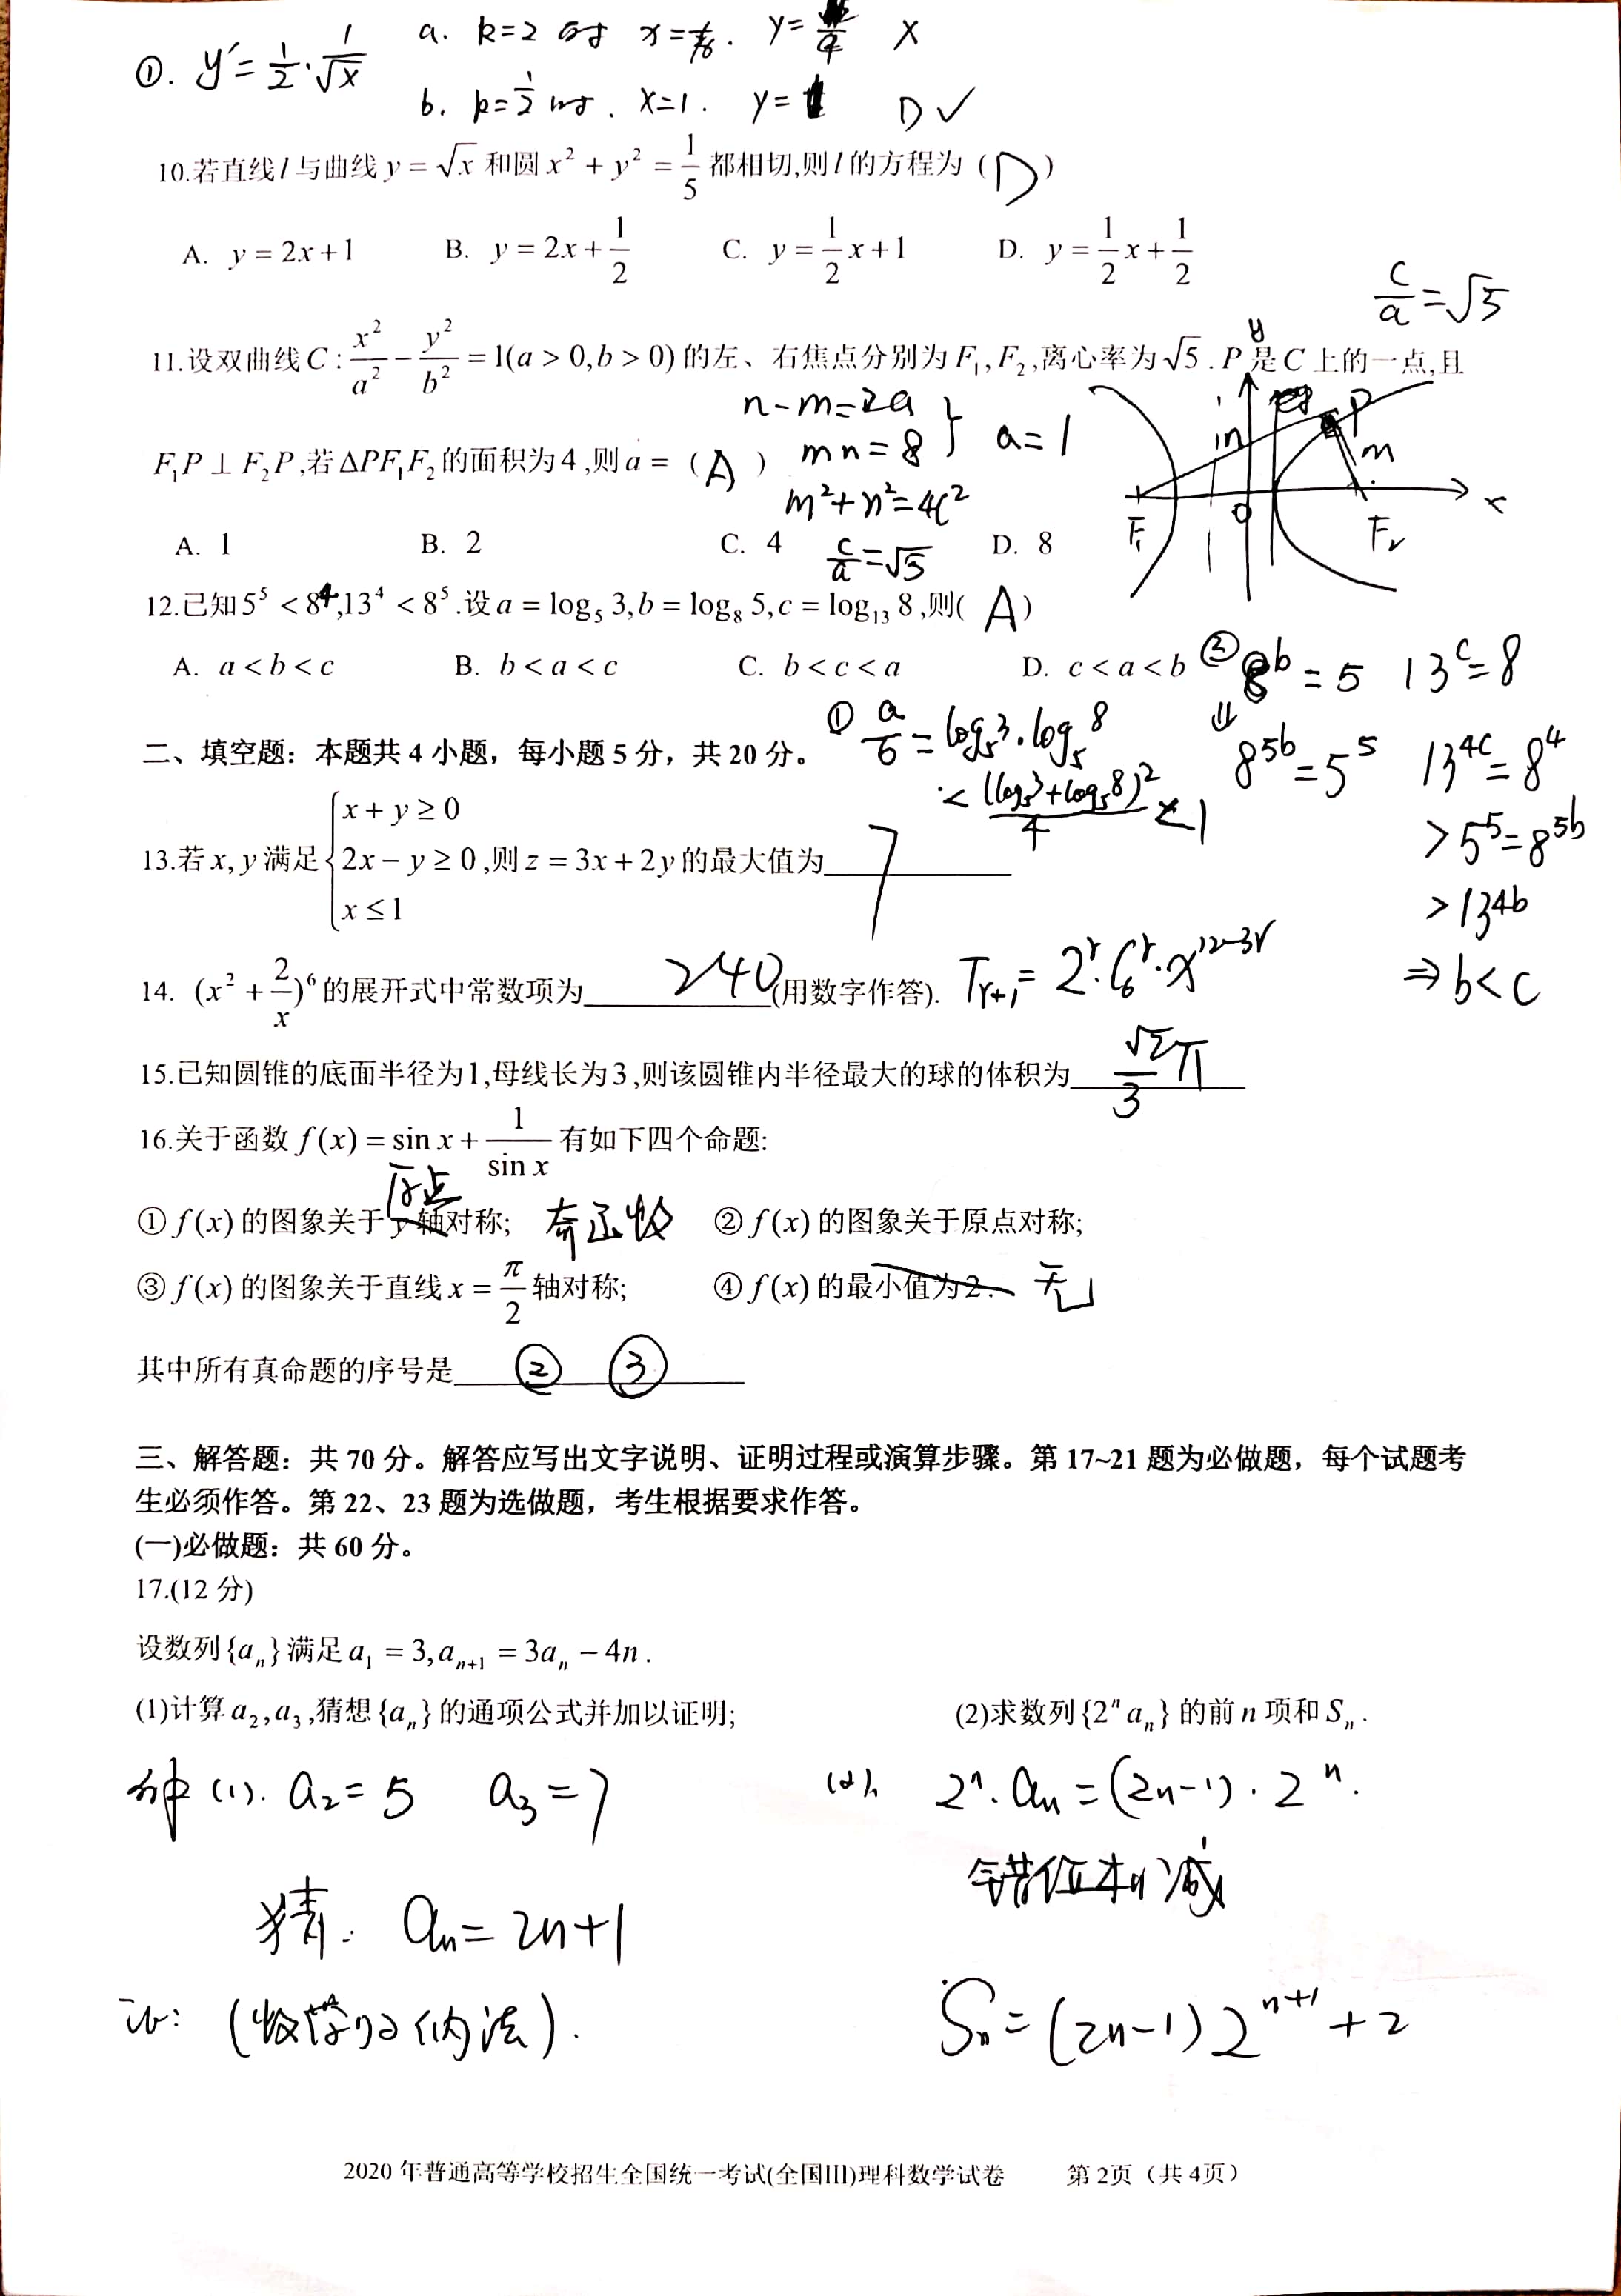 ①. y′ = 1/2 · 1/√x
a. k=2 时 x=1/16. y= 1/4 ×
b. k=1/2 时. x=1. y=1 D✓
10.若直线 l 与曲线 y = √x 和圆 x² + y² = 1/5 都相切,则 l 的方程为 ( D )
A. y = 2x + 1 B. y = 2x + 1/2 C. y = 1/2 x + 1 D. y = 1/2 x + 1/2
c/a = √5
11.设双曲线 C : x²/a² − y²/b² = 1(a > 0, b > 0) 的左、右焦点分别为 F₁, F₂,离心率为 √5 . P 是 C 上的一点,且
F₁P ⊥ F₂P,若 ΔPF₁F₂ 的面积为 4,则 a = ( A )
n−m=2a
mn=8 } a=1
m²+n²=4c²
c/a=√5
y P n m F₁ O F₂ x
A. 1 B. 2 C. 4 D. 8
12.已知 5⁵ < 8⁴,13⁴ < 8⁵ .设 a = log₅ 3, b = log₈ 5, c = log₁₃ 8 ,则( A )
A. a < b < c B. b < a < c C. b < c < a D. c < a < b
① a/b = log₅3 · log₅8
< (log₅3+log₅8)²/4 < 1
② 8ᵇ = 5 13ᶜ = 8
⇓
8⁵ᵇ = 5⁵ 13⁴ᶜ = 8⁴
> 5⁵ = 8⁵ᵇ
> 13⁴ᵇ
⇒ b < c
二、填空题：本题共 4 小题，每小题 5 分，共 20 分。
13.若 x, y 满足 { x + y ≥ 0
2x − y ≥ 0 ,则 z = 3x + 2y 的最大值为 7
x ≤ 1
14. (x² + 2/x)⁶ 的展开式中常数项为 240 (用数字作答). Tr+1 = 2ʳ·C₆ʳ·x¹²⁻³ʳ
15.已知圆锥的底面半径为 1,母线长为 3,则该圆锥内半径最大的球的体积为 √2/3 π
16.关于函数 f(x) = sin x + 1/sin x 有如下四个命题:
原点
① f(x) 的图象关于 y 轴对称; 奇函数 ② f(x) 的图象关于原点对称;
③ f(x) 的图象关于直线 x = π/2 轴对称; ④ f(x) 的最小值为 2. 无
其中所有真命题的序号是 ② ③
三、解答题：共 70 分。解答应写出文字说明、证明过程或演算步骤。第 17~21 题为必做题，每个试题考
生必须作答。第 22、23 题为选做题，考生根据要求作答。
(一)必做题：共 60 分。
17.(12 分)
设数列{aₙ}满足 a₁ = 3, aₙ₊₁ = 3aₙ − 4n .
(1)计算 a₂, a₃,猜想{aₙ}的通项公式并加以证明; (2)求数列{2ⁿaₙ}的前 n 项和 Sₙ .
解 (1). a₂ = 5 a₃ = 7
猜. aₙ = 2n+1
证: (数学归纳法).
(2). 2ⁿ·aₙ = (2n−1)·2ⁿ.
错位相减
Sₙ = (2n−1)2ⁿ⁺¹ + 2
2020 年普通高等学校招生全国统一考试(全国III)理科数学试卷 第 2页（共 4页）